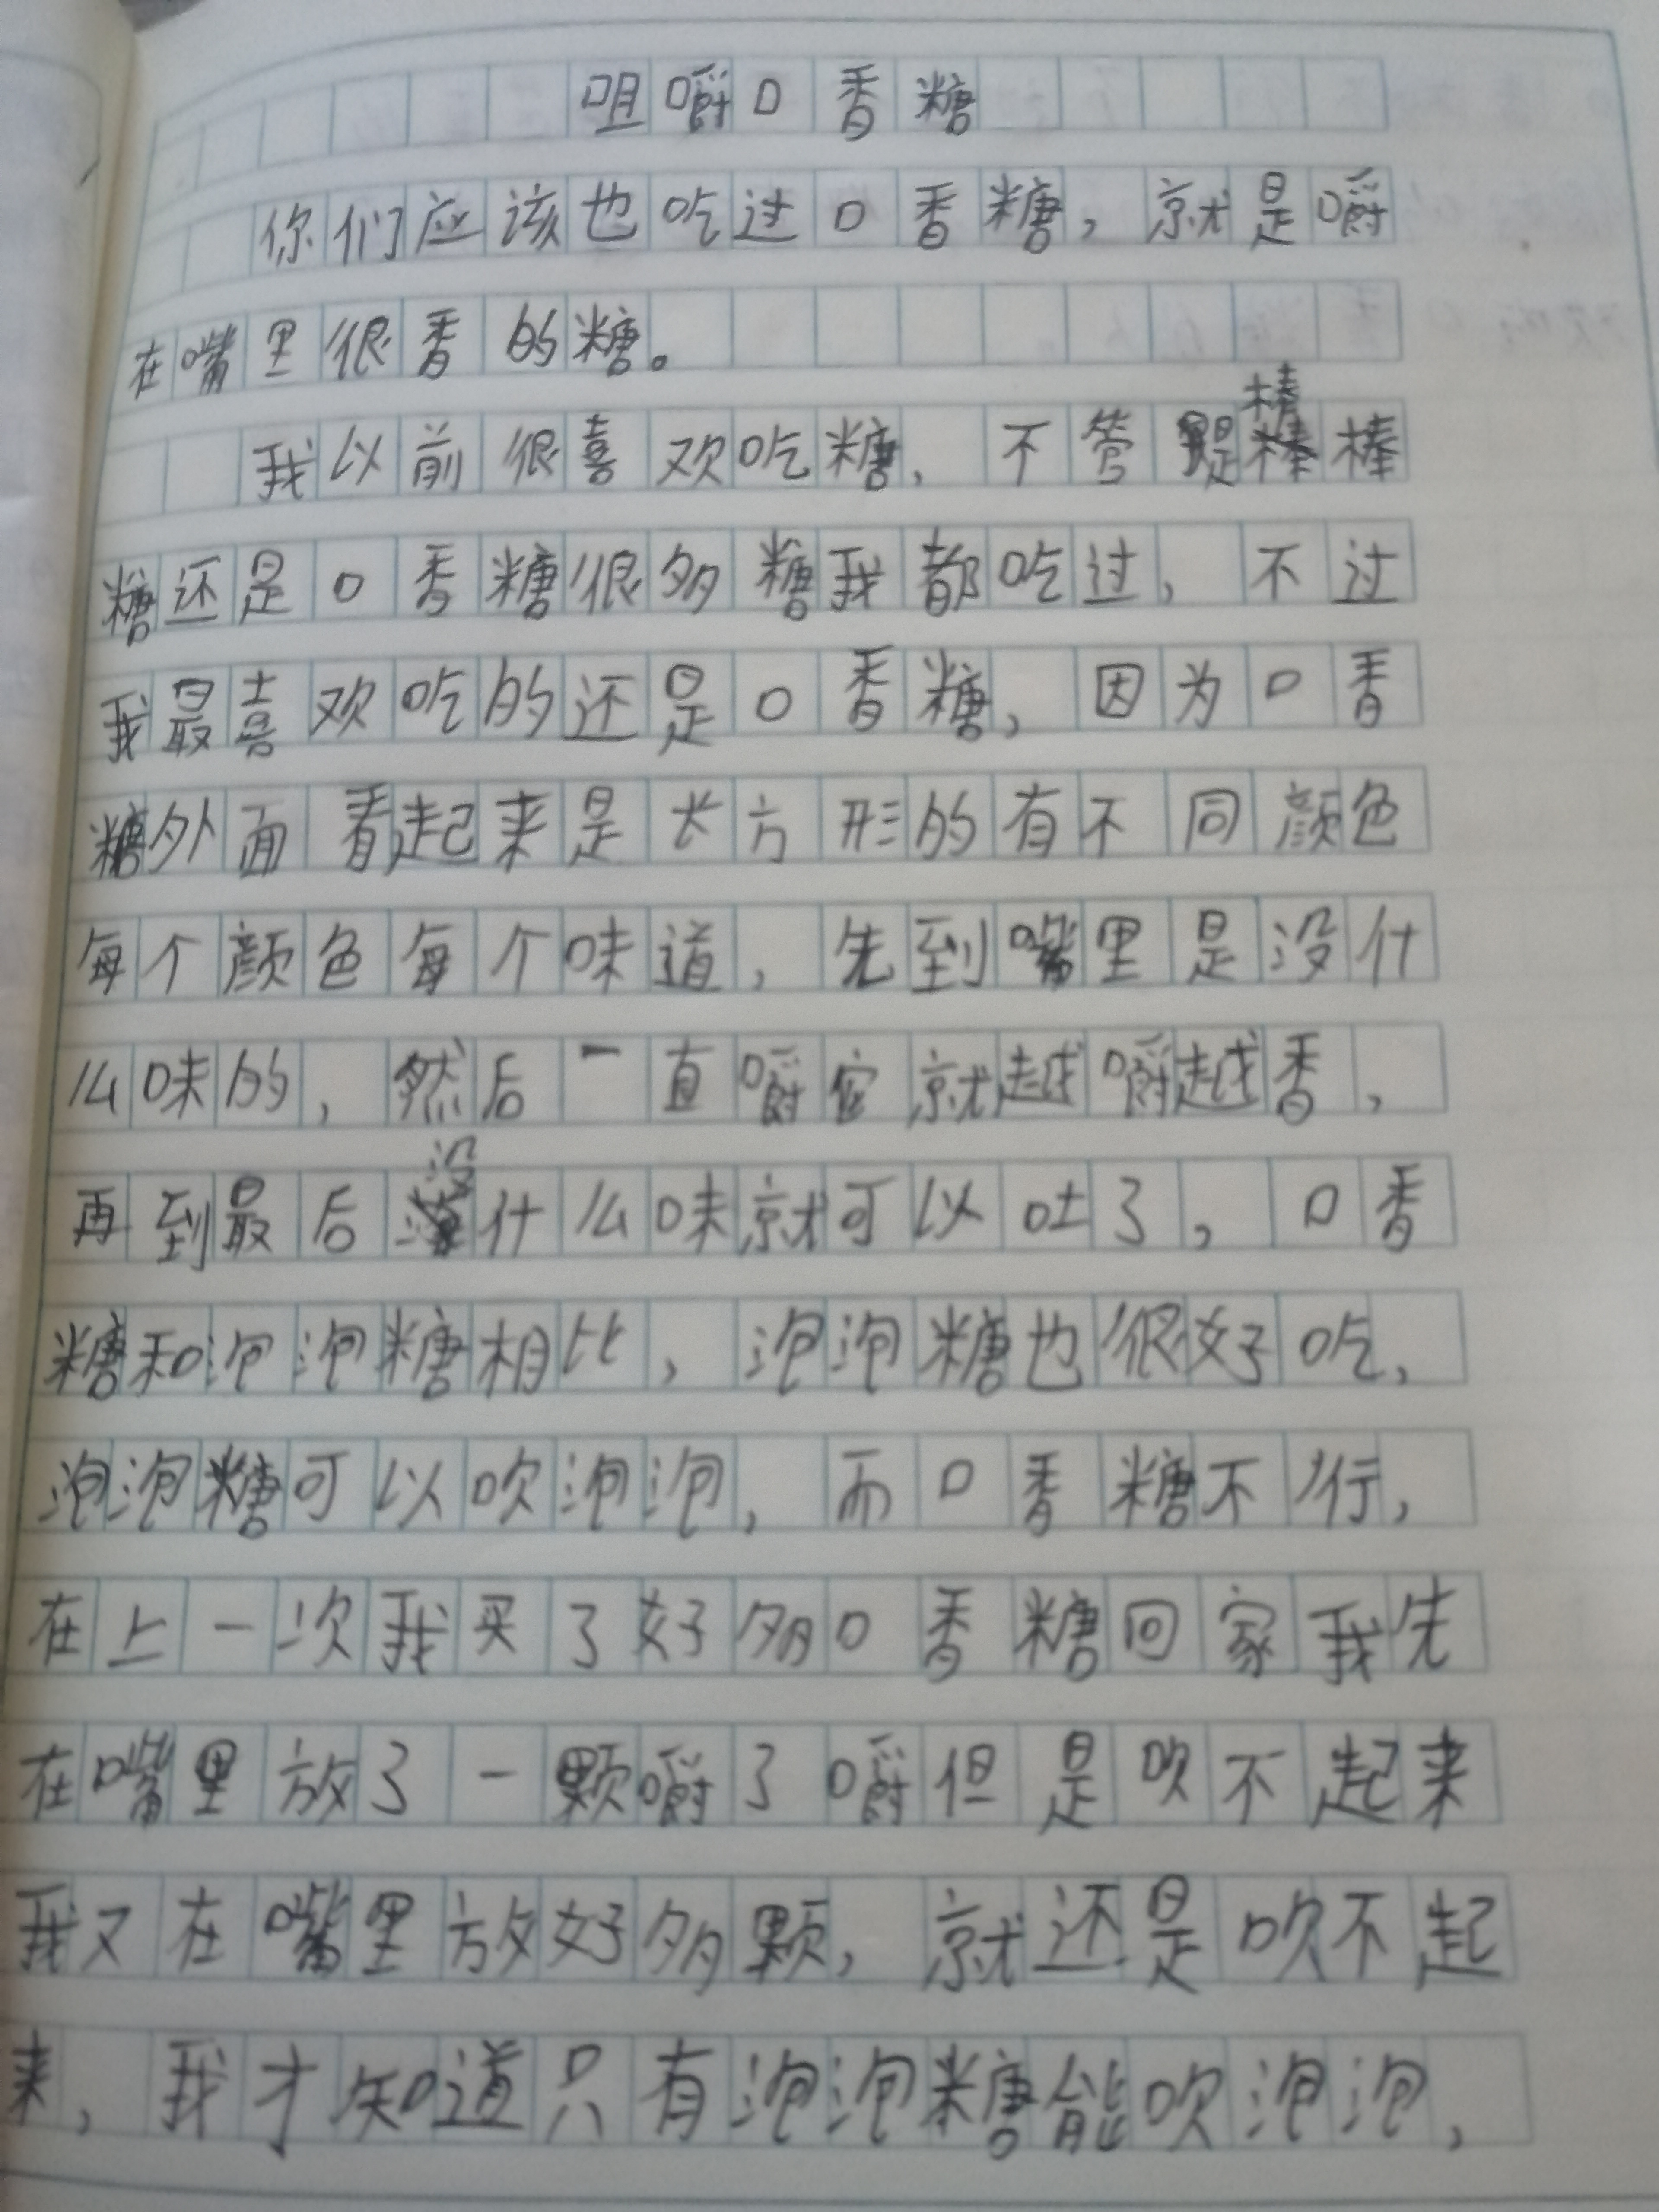 咀嚼口香糖
你们应该也吃过口香糖，就是嚼
在嘴里很香的糖。
我以前很喜欢吃糖，不管是棒棒
糖还是口香糖很多糖我都吃过，不过
我最喜欢吃的还是口香糖，因为口香
糖外面看起来是长方形的有不同颜色
每个颜色每个味道，先到嘴里是没什
么味的，然后一直嚼它就越嚼越香，
再到最后没什么味就可以吐了，口香
糖和泡泡糖相比，泡泡糖也很好吃，
泡泡糖可以吹泡泡，而口香糖不行，
在上一次我买了好多口香糖回家我先
在嘴里放了一颗嚼了嚼但是吹不起来
我又在嘴里放好多颗，就还是吹不起
来，我才知道只有泡泡糖能吹泡泡，